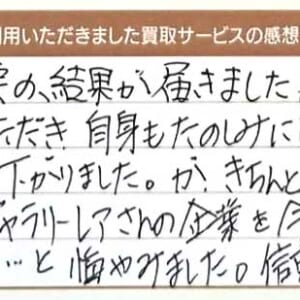 用いただきました買取サービスの感想
の、結果が届きました
ただき 自身もたのしみに
下がりました。が、きちんと
ャラリーレアさんの企業を
…と悔やみました。信